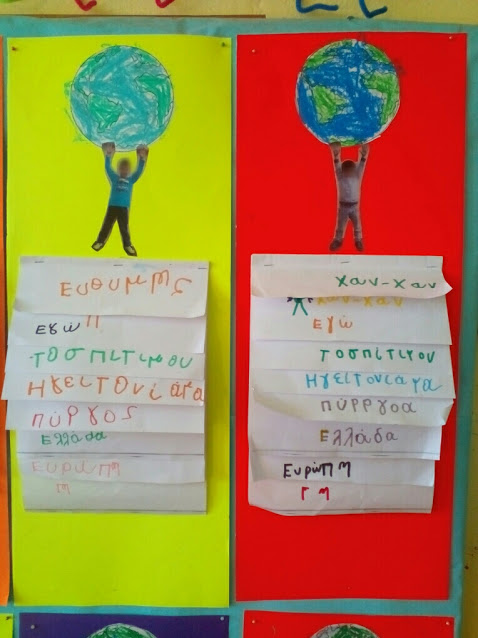 Ευθυμης
εγώ
τοσπιτιμου
Ηγειτονιάμα
πύργος
Ελλάδα
Ευρώπη
γη
χαν-χαν
χαν-χαν
Εγώ
τοσπίτιμου
Ηγειτονιαμα
πύργοα
Ελλάδα
Ευρώπη
Γη